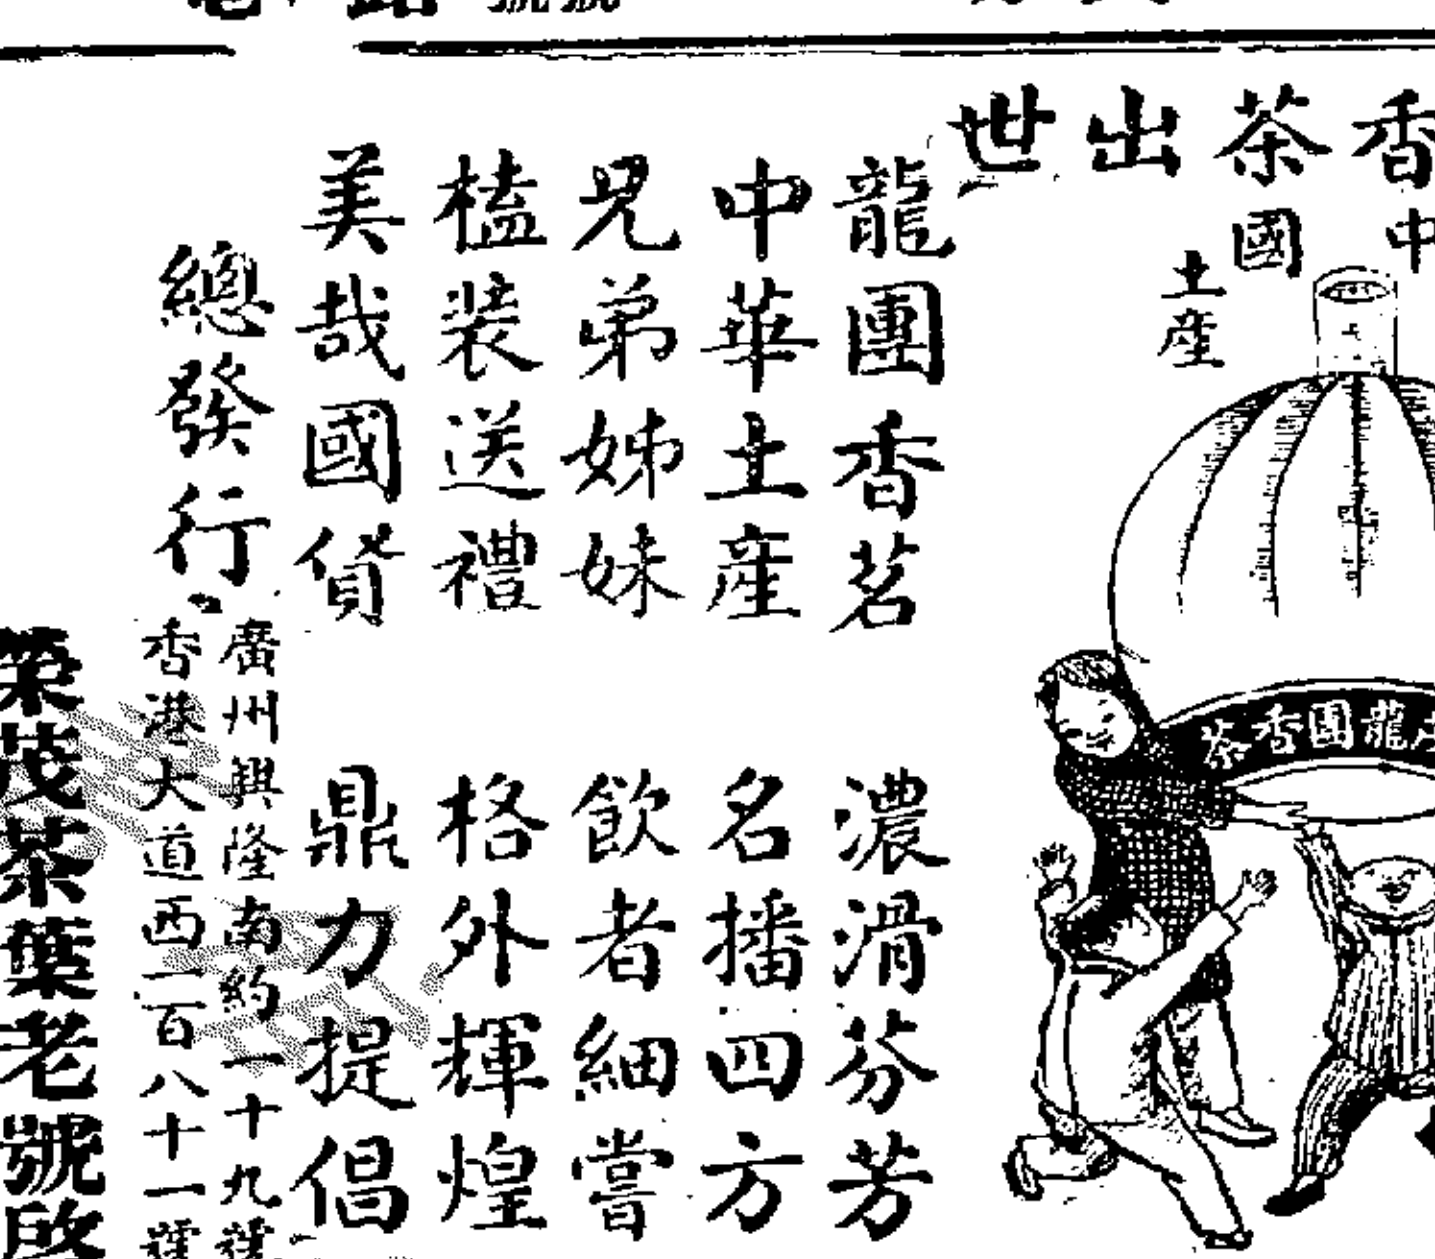 香茶出世
中國
土產
龍團香茶
龍團香茗 濃滑芬芳
中華土產 名播四方
兄弟姊妹 飲者細嘗
榼裝送禮 格外輝煌
美哉國貨 鼎力提倡
總發行
廣州興隆南約一十九號
香港大道西一百八十一號
榮茂茶葉老號啟